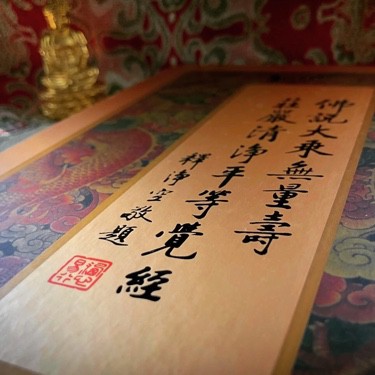 佛說大乘無量壽
莊嚴清淨平等覺經
釋淨空敬題